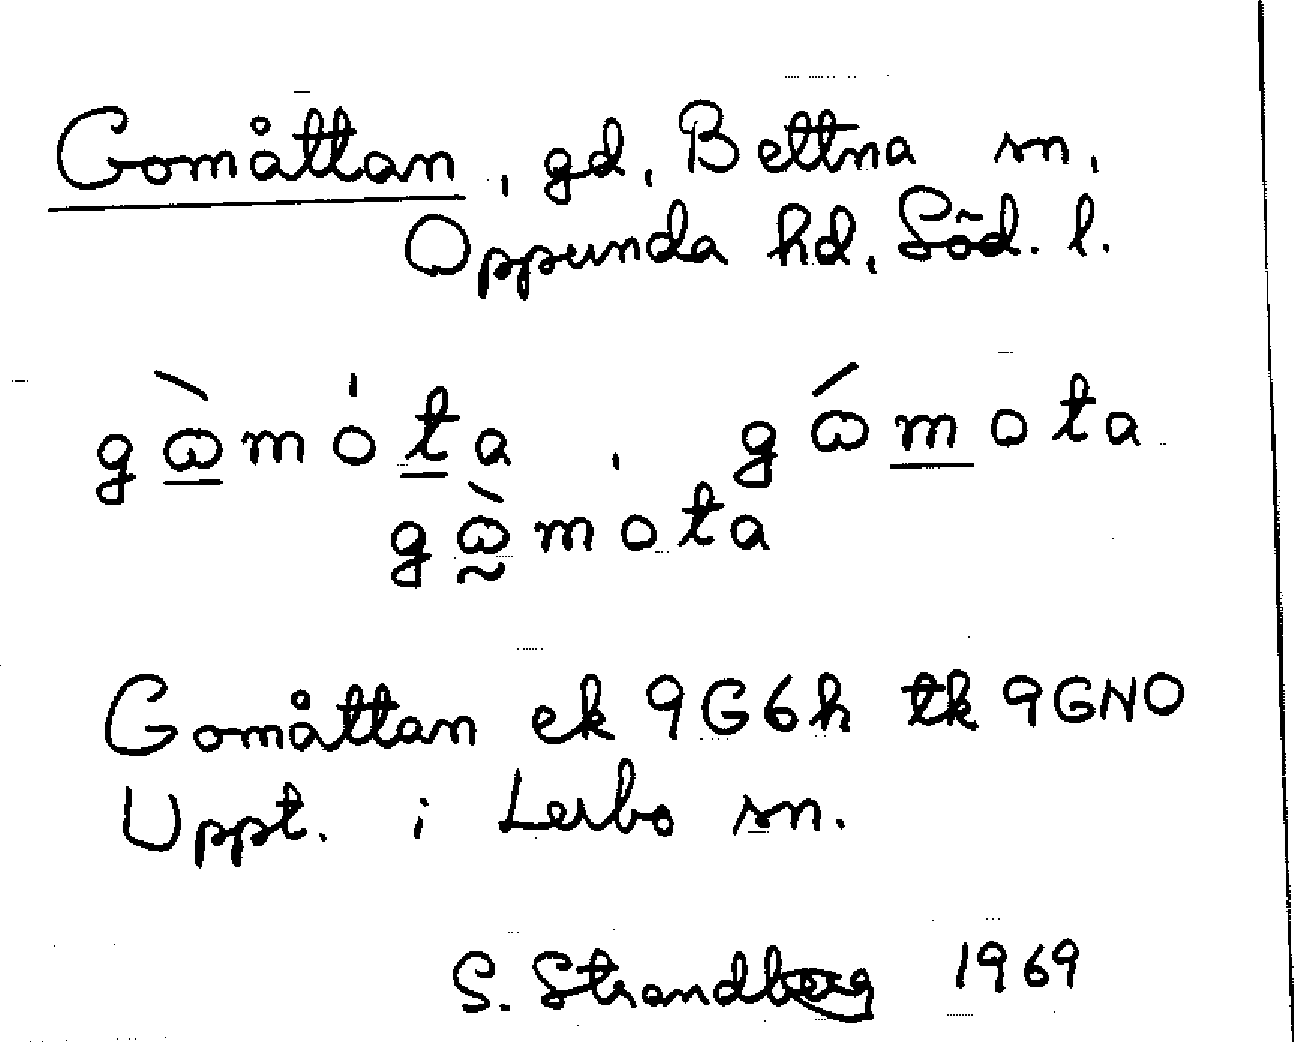 Gomåttan, gd, Bettna sn,
Oppunda hd, Söd. l.
gὼmót̲a, gώm̲ota
gὼ̰mota
Gomåttan ek 9G6h tk 9GNO
Uppt. i Lerbo sn.
S. Strandberg 1969